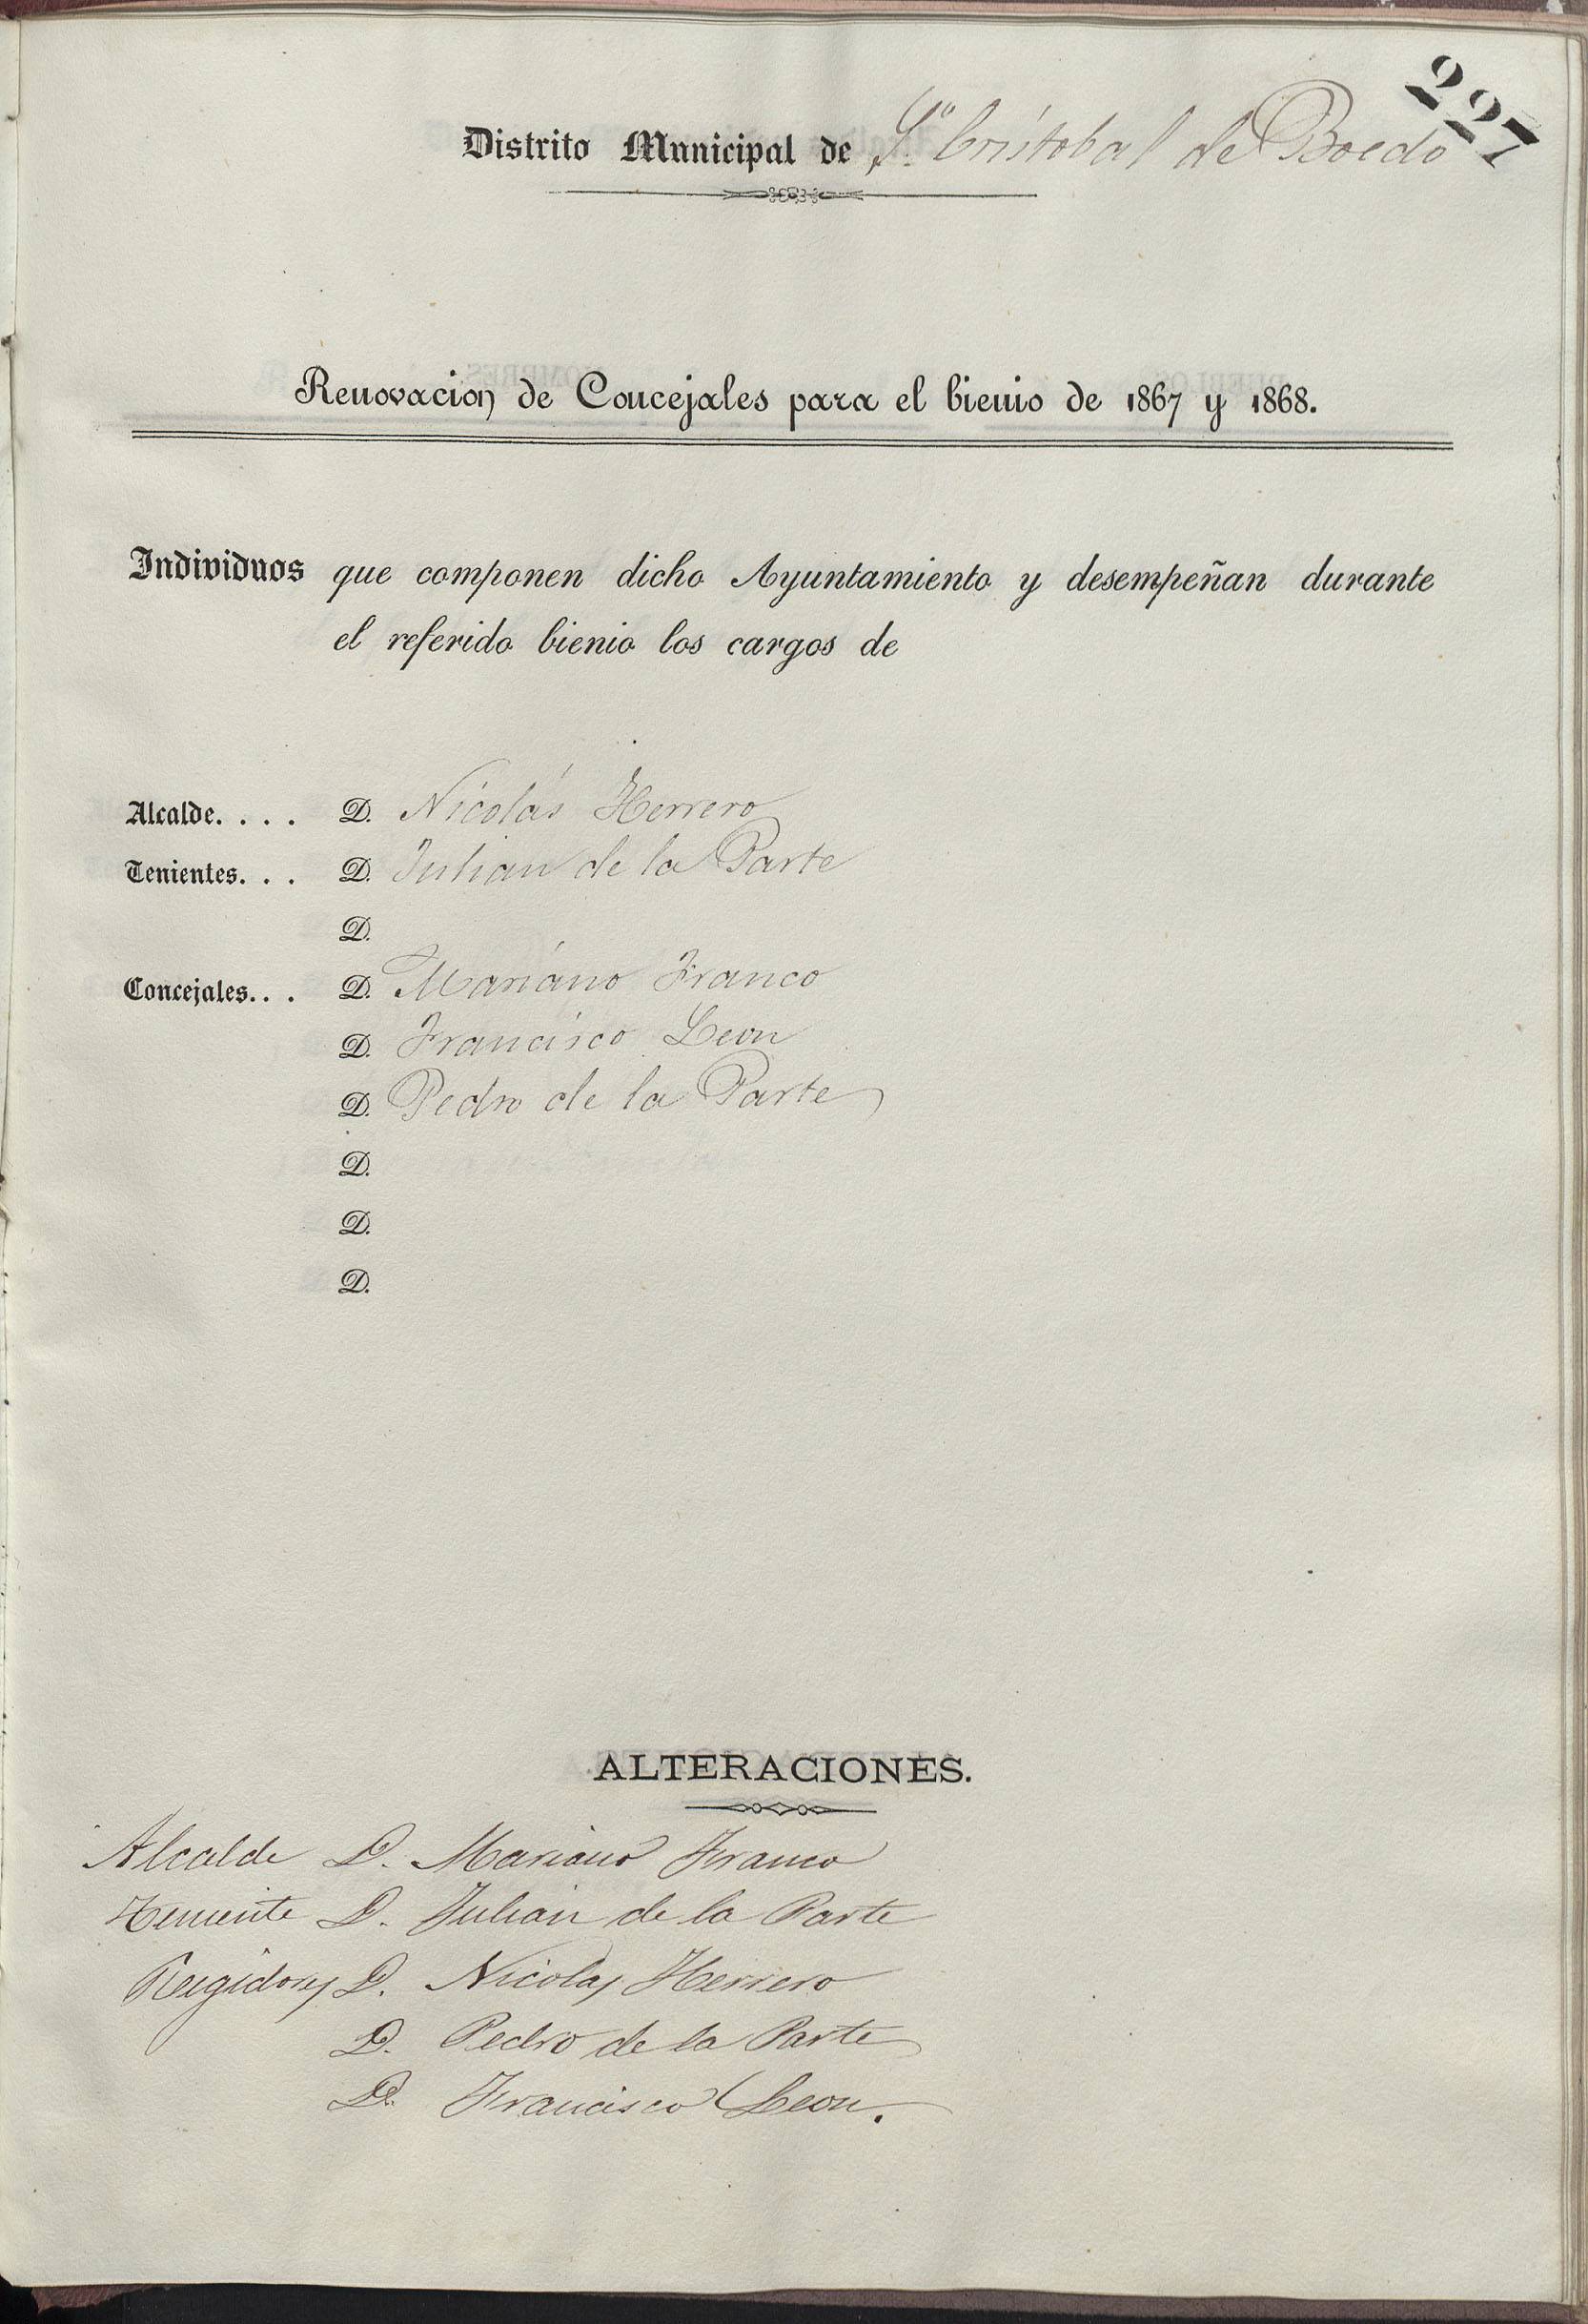 227
Distrito Municipal de Sn. Cristobal de Boedo
Renovacion de Concejales para el bienio de 1867 y 1868.
Individuos que componen dicho Ayuntamiento y desempeñan durante
el referido bienio los cargos de
Alcalde. . . . D. Nicolás Herrero
Tenientes. . . D. Julian de la Parte
D.
Concejales. . . D. Mariano Franco
D. Francisco Leon
D. Pedro de la Parte
D.
D.
D.
ALTERACIONES.
Alcalde D. Mariano Franco
Teniente D. Julian de la Parte
Regidores D. Nicolas Herrero
D. Pedro de la Parte
D. Francisco Leon.